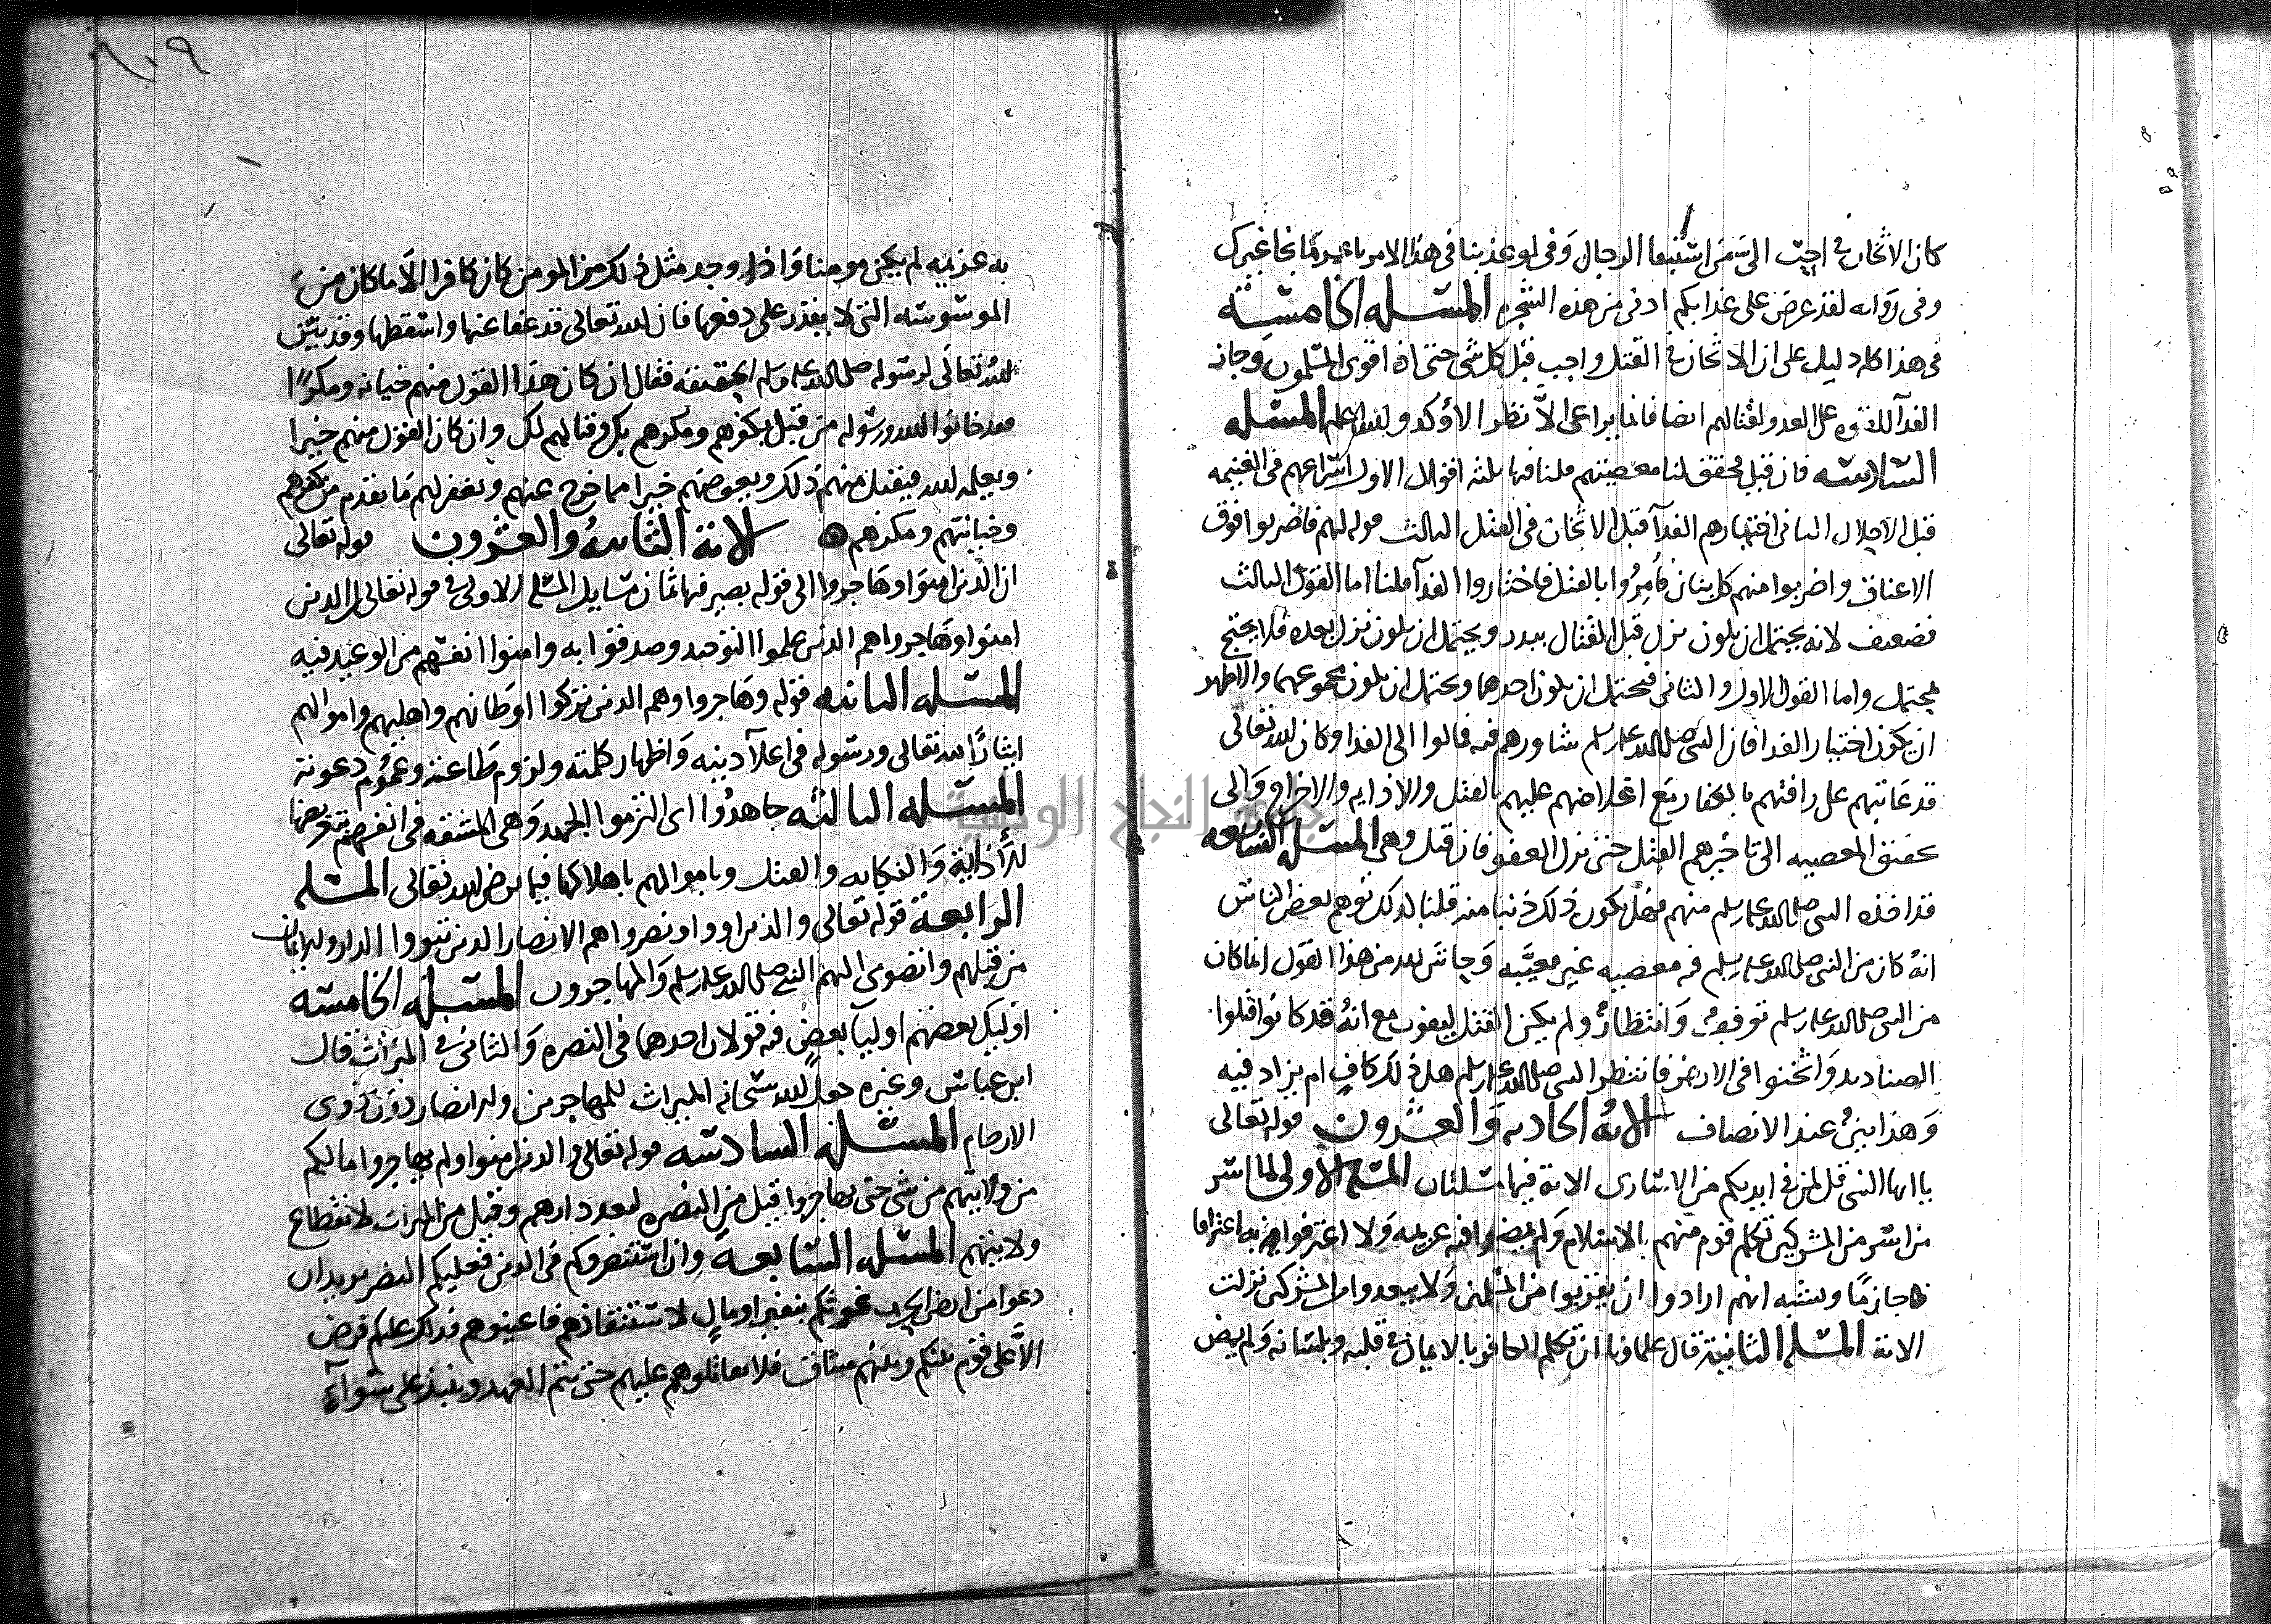 كان الاثخان في احب الى من استبقا الرجال وفي لو عذبنا في هذا الامر يا عمر ما نجا غيرك
وفي روايه لقد عرض على عذابكم ادنى من هذه الشجره المسله الخامسة
في هذا كله دليل على ان الاثخان في القتل واجب قبل كل شي حتى اذا قوى المسلمون وجاز
الفدآ للقوه على العدو ولقتالهم ايضا فانما يراعى الانظر الاوكد والله اعلم المسله
السادسه فان قيل محقق لنا معصيتهم قلنا فيها ثلثه اقوال الاول اسراعهم في الغنيمه
قبل الاحلال الثاني اختيارهم الفدآ قبل الاثخان في القتل الثالث قوله لهم فاضربوا فوق
الاعناق واضربوا منهم كل بنان فأمروا بالقتل فاختاروا الفدآ قلنا اما القول الثالث
فضعيف لانه يحتمل ان يكون نزل قبل القتال ببدر ويحتمل ان يكون نزل بعده فلا يحتج
بمحتمل واما القول الاول والثاني فيحتمل ان يكون احدهما ويحتمل ان يكون مجموعهما والاظهر
ان يكون اختيار الفدا فان النبي صلى الله عليه وسلم شاورهم فيه فمالوا الى الفدا وكان الله تعالى
قد عاتبهم على رافتهم بالكفار مع اغلاظهم عليهم بالقتل والاذايه والاخراج والى
تحقيق المعصيه الى تاخيرهم القتل حتى نزل العفو فان قيل وهي المسله السابعه
قد اخذه النبي صلى الله عليه وسلم منهم فهل يكون ذلك ذنبا منه قلنا لذلك توهم بعض الناس
انه كان من النبي صلى الله عليه وسلم فيه معصيه غير معينه وحاش لله من هذا القول انما كان
من النبي صلى الله عليه وسلم توقف وانتظار ولم يكن القتل ليفوت مع انه قد كانوا قتلوا
الصناديد واثخنوا في الارض فانتظر النبي صلى الله عليه وسلم هل ذلك كاف ام يزاد فيه
وهذا بين عند الانصاف الايه الحاديه والعشرون قوله تعالى
يا ايها النبي قل لمن في ايديكم من الاسارى الاية فيها مسلتان المسله الاولى لما اسر
من اسر من المشركين تكلم قوم منهم بالاسلام ولم يمضوا فيه عزيمه ولا اعترفوا به اعترافا
جازما ويشبه انهم ارادوا ان يقربوا من المسلمين ولا يبعدوا من المشركين نزلت
الاية المسله الثانية قال علماونا ان تكلم الكافر بالايمان في قلبه وبلسانه ولم يمض
به عزيمه لم يكن مومنا واذا وجد مثل ذلك من المومن كان كافرا الا ما كان من
الموسوسه التي لا يقدر على دفعها فان الله تعالى قد عفا عنها واسقطها وقد بين
الله تعالى لرسوله صلى الله عليه وسلم الحقيقه فقال ان كان هذا القول منهم خيانه ومكرا
فقد خانوا الله ورسوله من قبل بكفرهم ومكرهم بك وقتالهم لك وان كان القول منهم خيرا
ويعلمه الله فيقبل منهم ذلك ويعوضهم خيرا مما خرج عنهم ويغفر لهم ما تقدم من كفرهم
وخيانتهم ومكرهم ه الاية الثانية والعشرون قوله تعالى
ان الذين امنوا وهاجروا الى قوله بصير فيها ثمان مسايل المسله الاولى في قوله تعالى ان الذين
امنوا وهاجروا هم الذين علموا التوحيد وصدقوا به وامنوا انفسهم من الوعيد فيه
المسله الثانيه قوله وهاجروا وهم الذين تركوا اوطانهم واهليهم واموالهم
ايثارا لله تعالى ورسوله في اعلآ دينه واظهار كلمته ولزوم طاعته وعموم دعوته
المسله الثالثه جاهدوا اي التزموا الجهد وهي المشقه في انفسهم بتعريضها
للأذاية والنكايه والقتل وباموالهم باهلاكها فيما يرضي الله تعالى المسله
الرابعة قوله تعالى والذين اووا ونصروا هم الانصار الذين تبووا الدار والايمان
من قبلهم وانضوى اليهم النبي صلى الله عليه وسلم والمهاجرون المسله الخامسه
اوليك بعضهم اوليآ بعض فيه قولان احدهما في النصره والثاني في الميراث قال
ابن عباس وغيره جعل الله سبحانه الميراث للمهاجرين والانصار دون ذوى
الارحام المسله السادسه قوله تعالى والذين امنوا ولم يهاجروا ما لكم
من ولايتهم من شي حتى يهاجروا قيل من النصره لبعد دارهم وقيل من الميراث لانقطاع
ولايتهم المسله السابعه وان استنصروكم في الدين فعليكم النصر يريد ان
دعوا من ارض الحرب غوثكم بنفير او مال لاستنقاذهم فاعينوهم فذلك عليكم فرض
الا على قوم بينكم وبينهم ميثاق فلا تقاتلوهم عليهم حتى يتم العهد وينبذ على سوآء